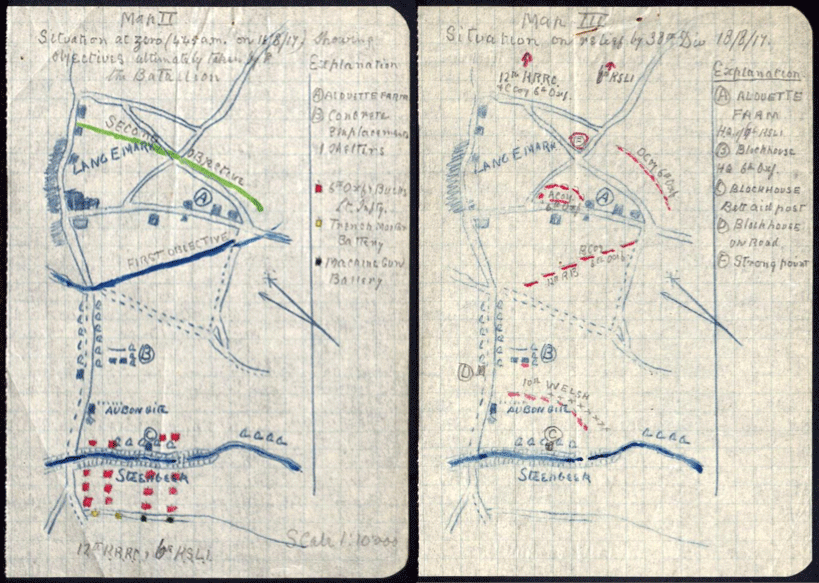 Map II
Situation at zero (4.45 am. on 16/8/17) Showing
objectives ultimately taken by
the Battalion
Explanation
(A) ALOUETTE FARM
(B) CONCRETE
Emplacements
Shelters
6th Oxf & Bucks
Lt. Infty.
Trench Mortar
Battery
Machine Gun
Battery
SECOND OBJECTIVE
LANGEMARK
A
FIRST OBJECTIVE
B
AU BON GITE
C
STEENBEEK
12th KRRC, 6th KSLI
Scale 1:10000
Map III
Situation on relief by 38th Div 18/8/17.
12th KRRC
+ C Coy 6th Oxf.
6th KSLI
Explanation
(A) ALOUETTE
FARM
HQ 6th KSLI
(B) Blockhouse
HQ 6th Oxf.
(C) BLOCKHOUSE
Batt aid post
(D) Blockhouse
on Road
(E) Strong point
E
LANGEMARK
D Coy 6th Oxf
A Coy
6th Oxf
A
B Coy
6th Oxf
12th RB
B
D
10th WELSH
AU BON GITE
C
STEENBEEK